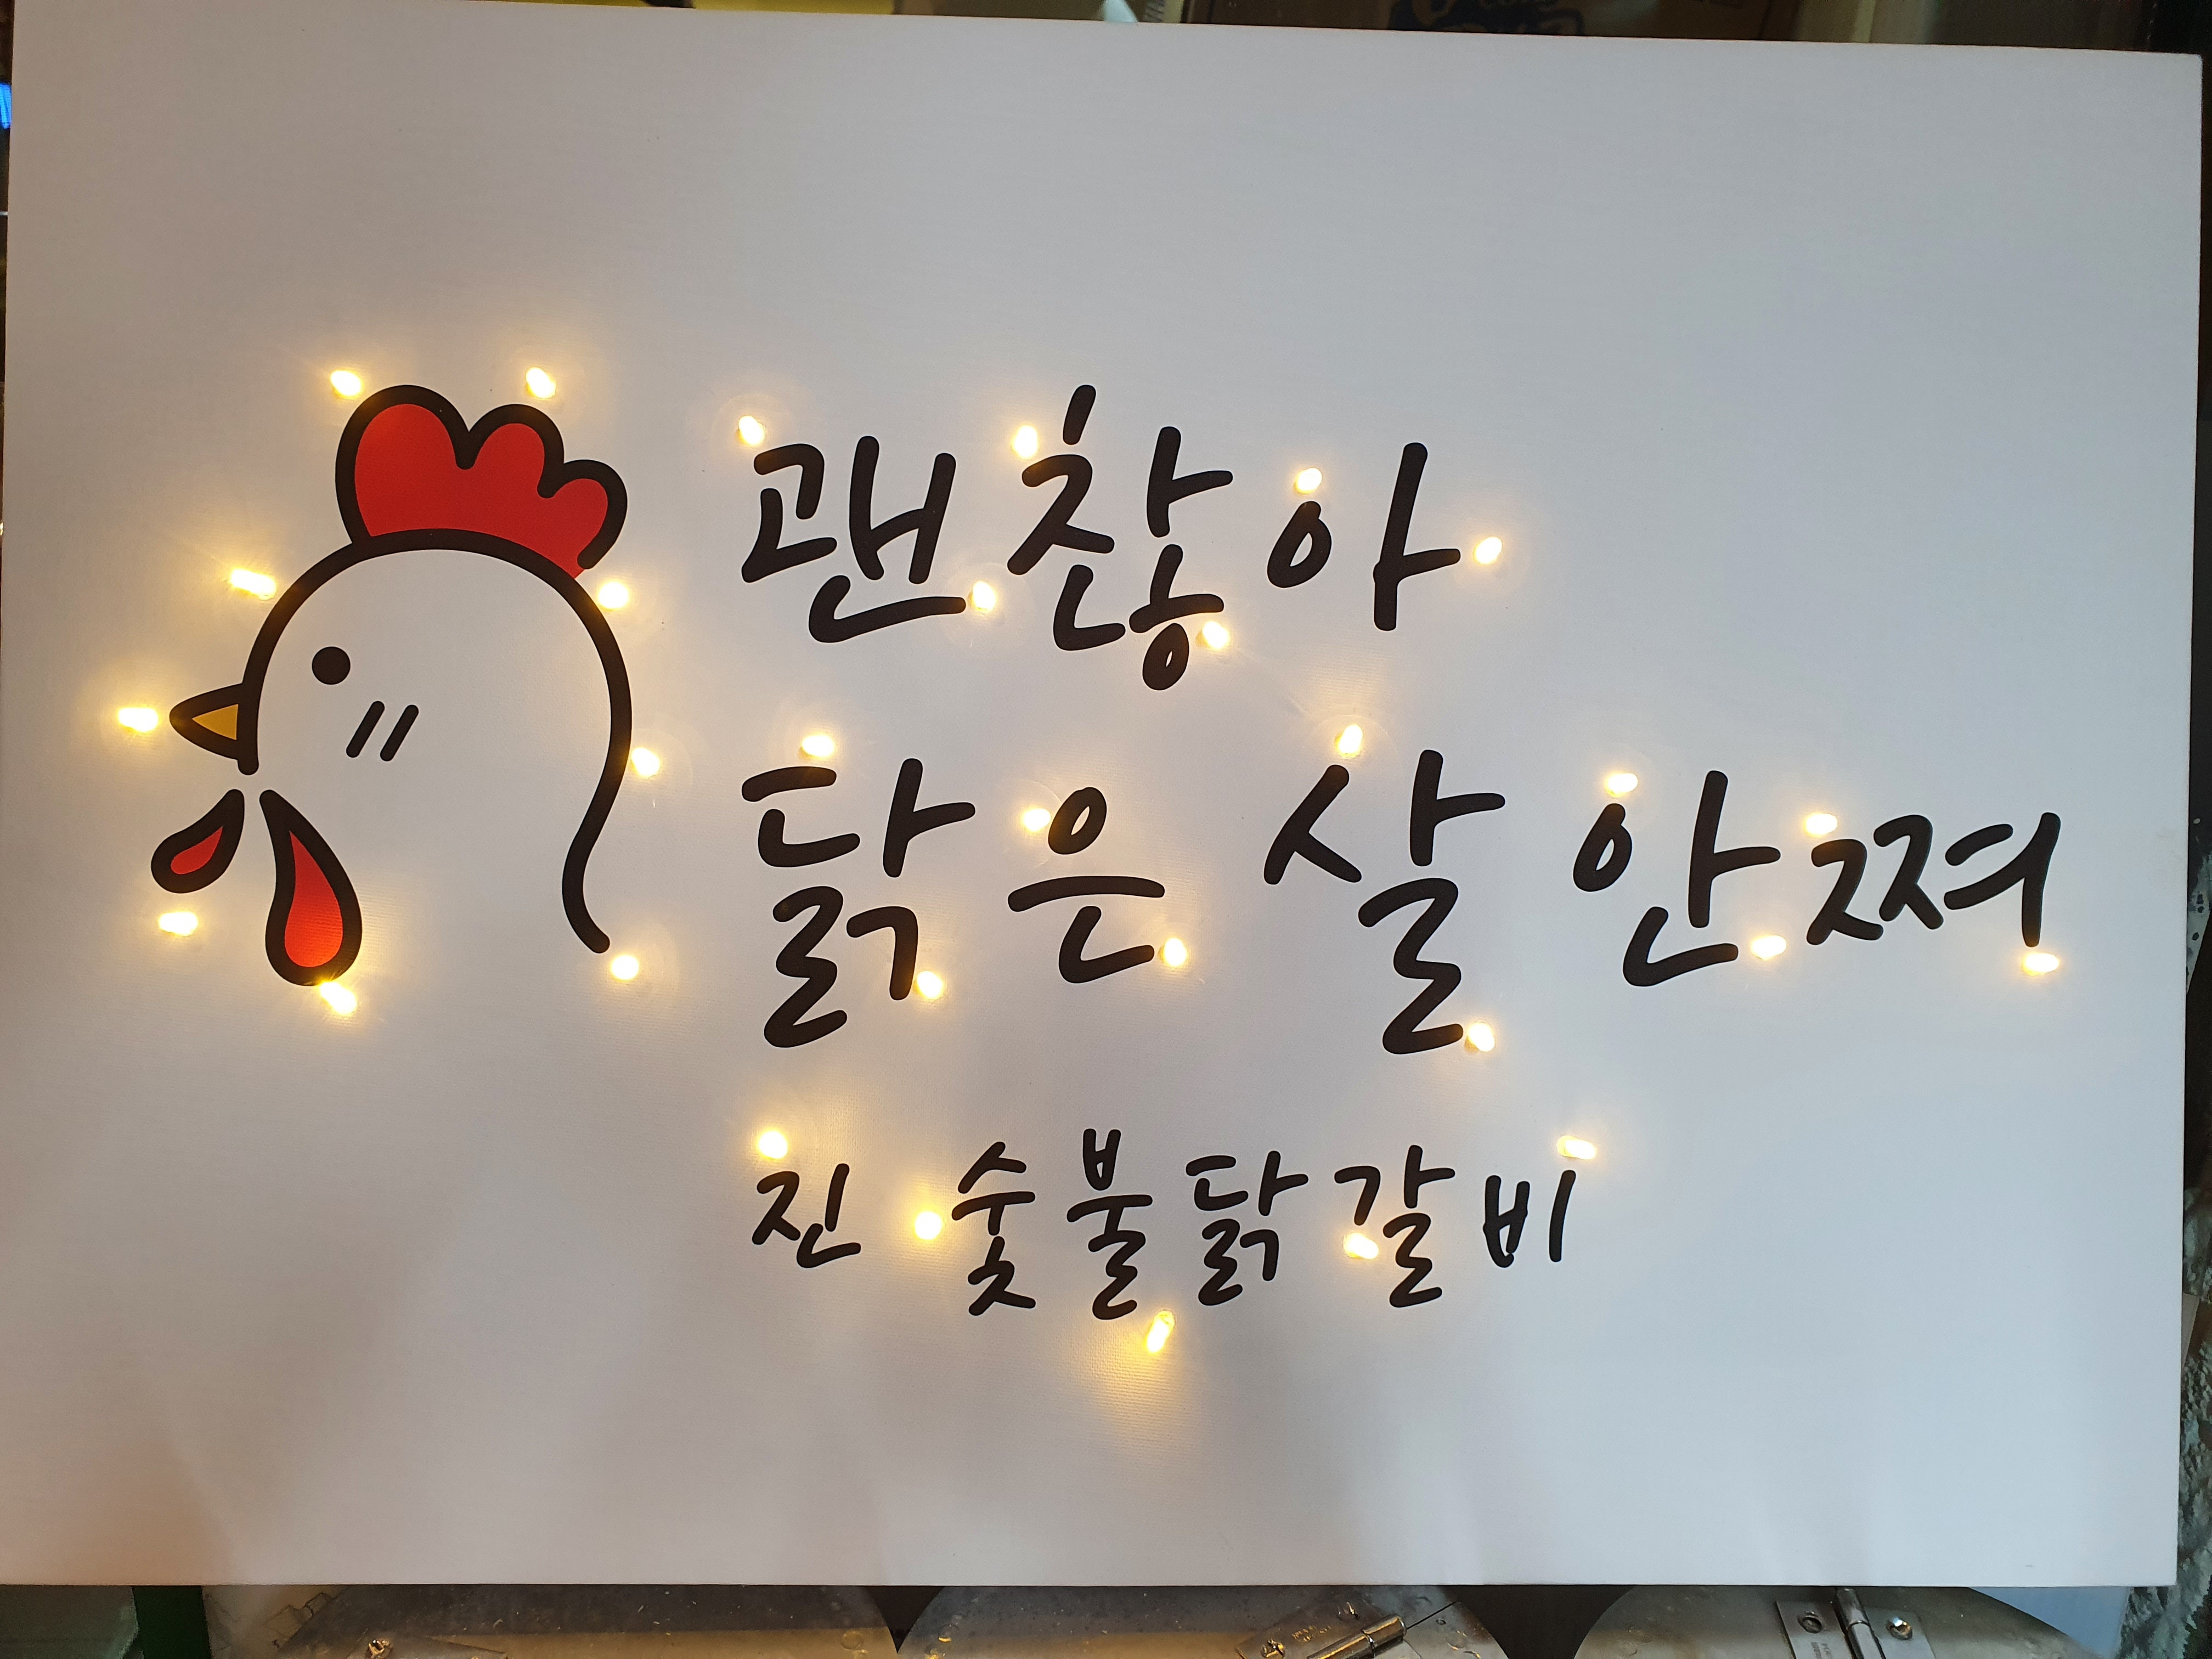 괜찮아
닭은 살 안쪄
진 숯불닭갈비